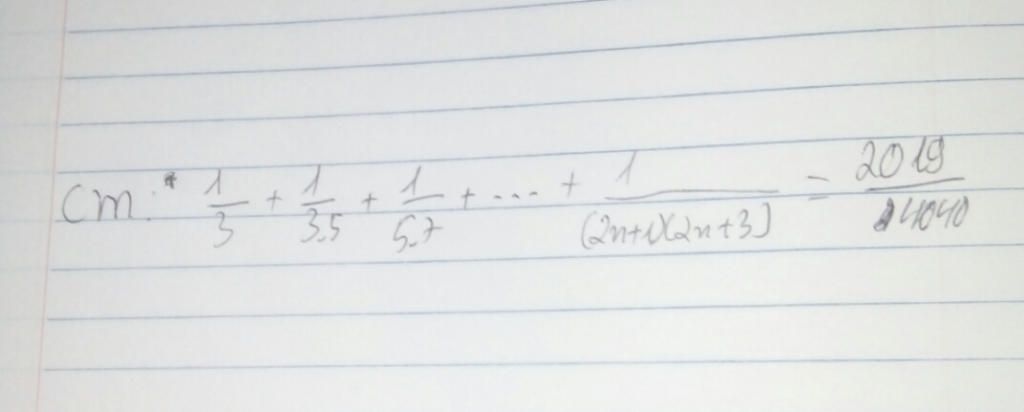 Cm: * 1/3 + 1/3.5 + 1/5.7 + ... + 1/(2n+1)(2n+3) = 2019/4040